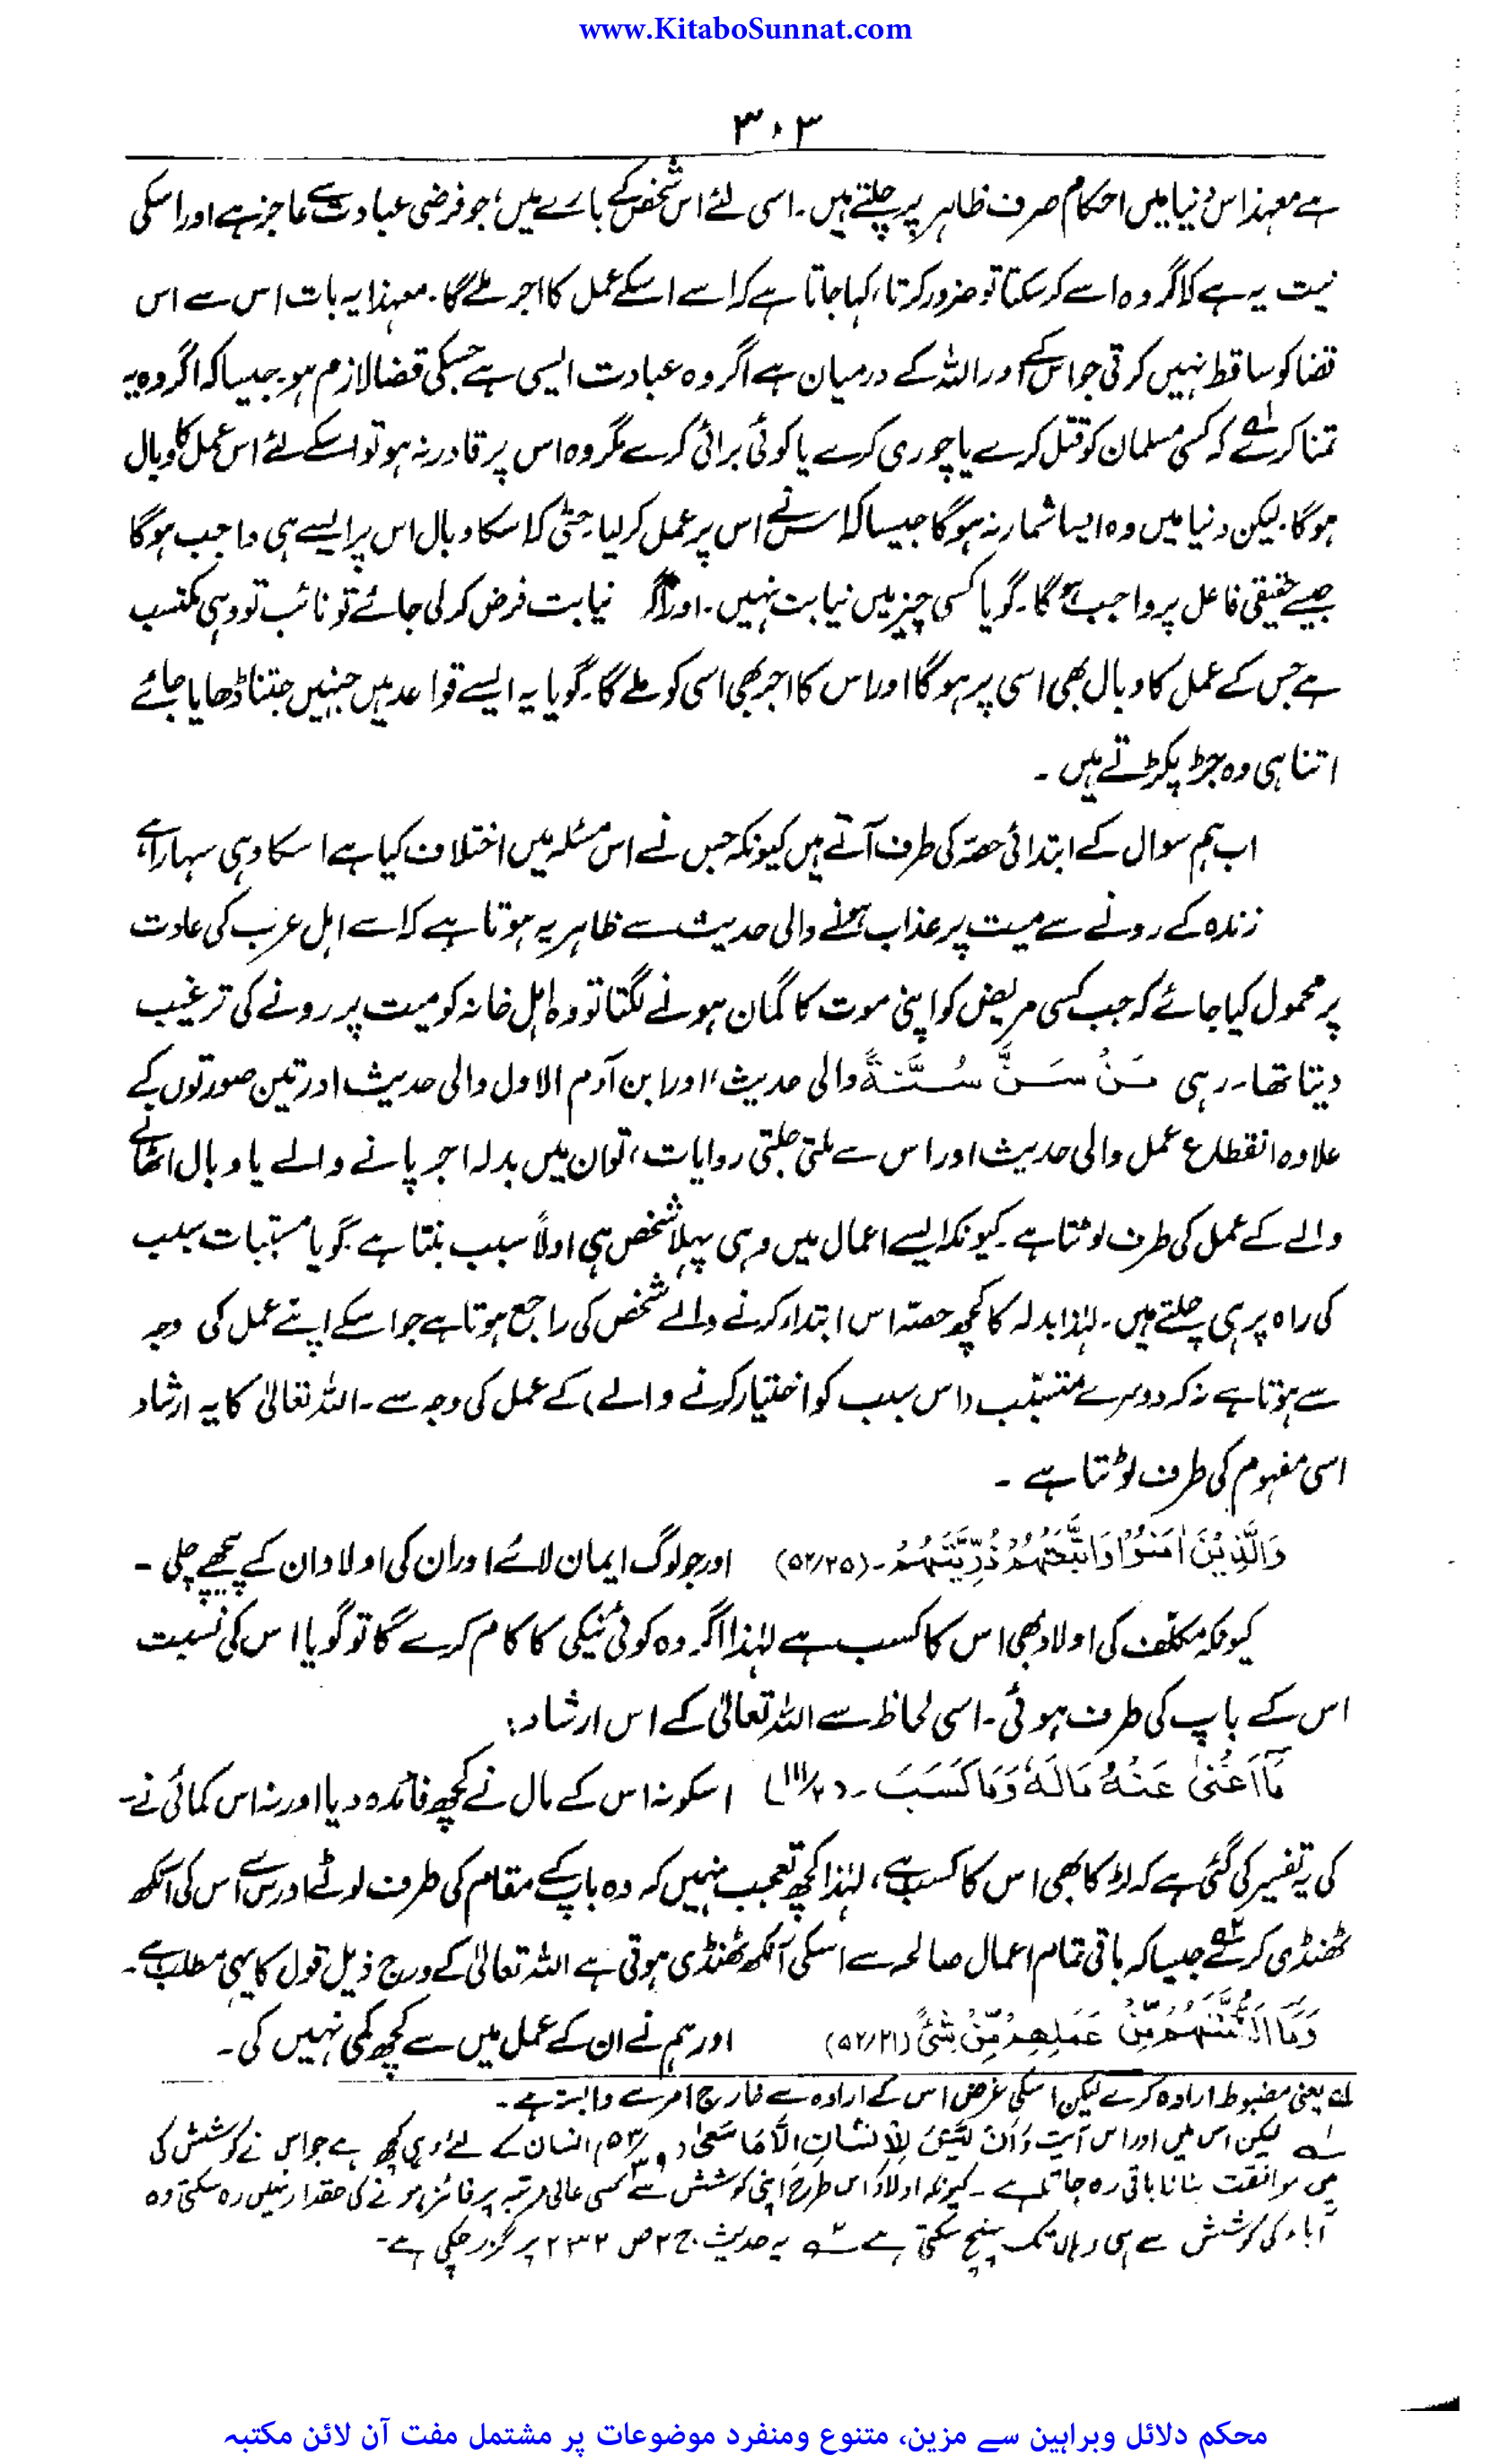 www.KitaboSunnat.com
۳۰۳
ہے معہذا اس دنیا میں احکام صرف ظاہر پر چلتے ہیں۔ اسی لئے اس شخص کے بارے میں، جو فرضی عبادت سے عاجز ہے اور اسکی
نیت یہ ہے کہ اگر وہ اسے کرسکتا تو ضرور کرتا، کہا جاتا ہے کہ اسے اسکے عمل کا اجر ملے گا۔ معہذا یہ بات اس سے اس
قضا کو ساقط نہیں کرتی جو اس کے اور اللہ کے درمیان ہے اگر وہ عبادت ایسی ہے جسکی قضا لازم ہو۔ جیسا کہ اگر وہ یہ
تمنا کرے لہ کہ کسی مسلمان کو قتل کرے یا چوری کرے یا کوئی برائی کرے مگر وہ اس پر قادر نہ ہو تو اسکے لئے اس عمل کا وبال
ہوگا۔ لیکن دنیا میں وہ ایسا شمار نہ ہوگا جیسا کہ اس نے اس پر عمل کرلیا۔ حتیٰ کہ اسکا وبال اس پر ایسے ہی واجب ہوگا
جیسے حقیقی فاعل پر واجب ہوگا۔ گویا کسی چیز میں نیابت نہیں۔ اور اگر نیابت فرض کرلی جائے تو نائب تو وہی مکتسب
ہے جس کے عمل کا وبال بھی اسی پر ہوگا اور اس کا اجر بھی اسی کو ملے گا۔ گویا یہ ایسے قواعد ہیں جنہیں جتنا ڈھایا جائے
اتنا ہی وہ جڑ پکڑتے ہیں۔
اب ہم سوال کے ابتدائی حصہ کی طرف آتے ہیں کیونکہ جس نے اس مسئلہ میں اختلاف کیا ہے اسکا وہی سہارا ہے،
زندہ کے رونے سے میت پر عذاب ہونے والی حدیث سے ظاہر یہ ہوتا ہے کہ اسے اہل عرب کی عادت
پر محمول کیا جائے کہ جب کسی مریض کو اپنی موت کا گمان ہونے لگتا تو وہ اہل خانہ کو میت پر رونے کی ترغیب
دیتا تھا۔ رہی مَنْ سَنَّ سُنَّةً والی حدیث، اور ابن آدم الاول والی حدیث اور تین صورتوں کے
علاوہ انقطاع عمل والی حدیث اور اس سے ملتی جلتی روایات، تو ان میں بدلہ اجر پانے والے یا وبال اٹھانے
والے کے عمل کی طرف لوٹتا ہے۔ کیونکہ ایسے اعمال میں وہی پہلا شخص ہی اولاً سبب بنتا ہے۔ گویا مسبّبات سبب
کی راہ پر ہی چلتے ہیں۔ لہٰذا بدلہ کا کچھ حصّہ اس ابتداء کرنے والے شخص کی راجع ہوتا ہے جو اسکے اپنے عمل کی وجہ
سے ہوتا ہے نہ کہ دوسرے متسبّب (اس سبب کو اختیار کرنے والے) کے عمل کی وجہ سے۔ اللہ تعالیٰ کا یہ ارشاد
اسی مفہوم کی طرف لوٹتا ہے۔
وَالَّذِيْنَ اٰمَنُوْا وَاتَّبَعَتْهُمْ ذُرِّيَّتُهُمْ۔ (۵۲/۲۵) اور جو لوگ ایمان لائے اور ان کی اولاد ان کے پیچھے چلی۔
کیونکہ مکلّف کی اولاد بھی اس کا کسب ہے لہٰذا اگر وہ کوئی نیکی کا کام کرے گا تو گویا اس کی نسبت
اس کے باپ کی طرف ہوئی۔ اسی لحاظ سے اللہ تعالیٰ کے اس ارشاد:
مَآ اَغْنٰى عَنْهُ مَالُهٗ وَمَا كَسَبَ۔ (۱۱۱/۲) اسکو نہ اس کے مال نے کچھ فائدہ دیا اور نہ اس کمائی نے۔
کی یہ تفسیر کی گئی ہے کہ لڑکا بھی اس کا کسب ہے، لہٰذا کچھ تعجب نہیں کہ وہ باپ کے مقام کی طرف لوٹے اور اس سے اس کی آنکھ
ٹھنڈی کرے ۲ہ جیسا کہ باقی تمام اعمال صالحہ سے اسکی آنکھ ٹھنڈی ہوتی ہے اللہ تعالیٰ کے درج ذیل قول کا یہی مطلب ہے۔
وَمَا اَلَتْنٰهُمْ مِّنْ عَمَلِهِمْ مِّنْ شَیْءٍ (۵۲/۲۱) اور ہم نے ان کے عمل میں سے کچھ کمی نہیں کی۔
لہ یعنی مضبوط ارادہ کرے لیکن اسکی غرض اس کے ارادہ سے خارج امر سے وابستہ ہے۔
۲ہ لیکن اس میں اور اس آیت وَاَنْ لَّيْسَ لِلْاِنْسَانِ اِلَّا مَا سَعٰى (۵۳/۳۹) انسان کے لئے وہی کچھ ہے جو اس نے کوشش کی
میں موافقت بنانا باقی رہ جاتا ہے۔ کیونکہ اولاد اس طرح اپنی کوشش سے کسی عالی مرتبہ پر فائز ہونے کی حقدار نہیں رہ سکتی وہ
آباء کی کوشش سے ہی وہاں تک پہنچ سکتی ہے ۳ہ یہ حدیث ج ۲ ص ۲۳۲ پر گزر چکی ہے۔
محکم دلائل وبراہین سے مزین، متنوع ومنفرد موضوعات پر مشتمل مفت آن لائن مکتبہ